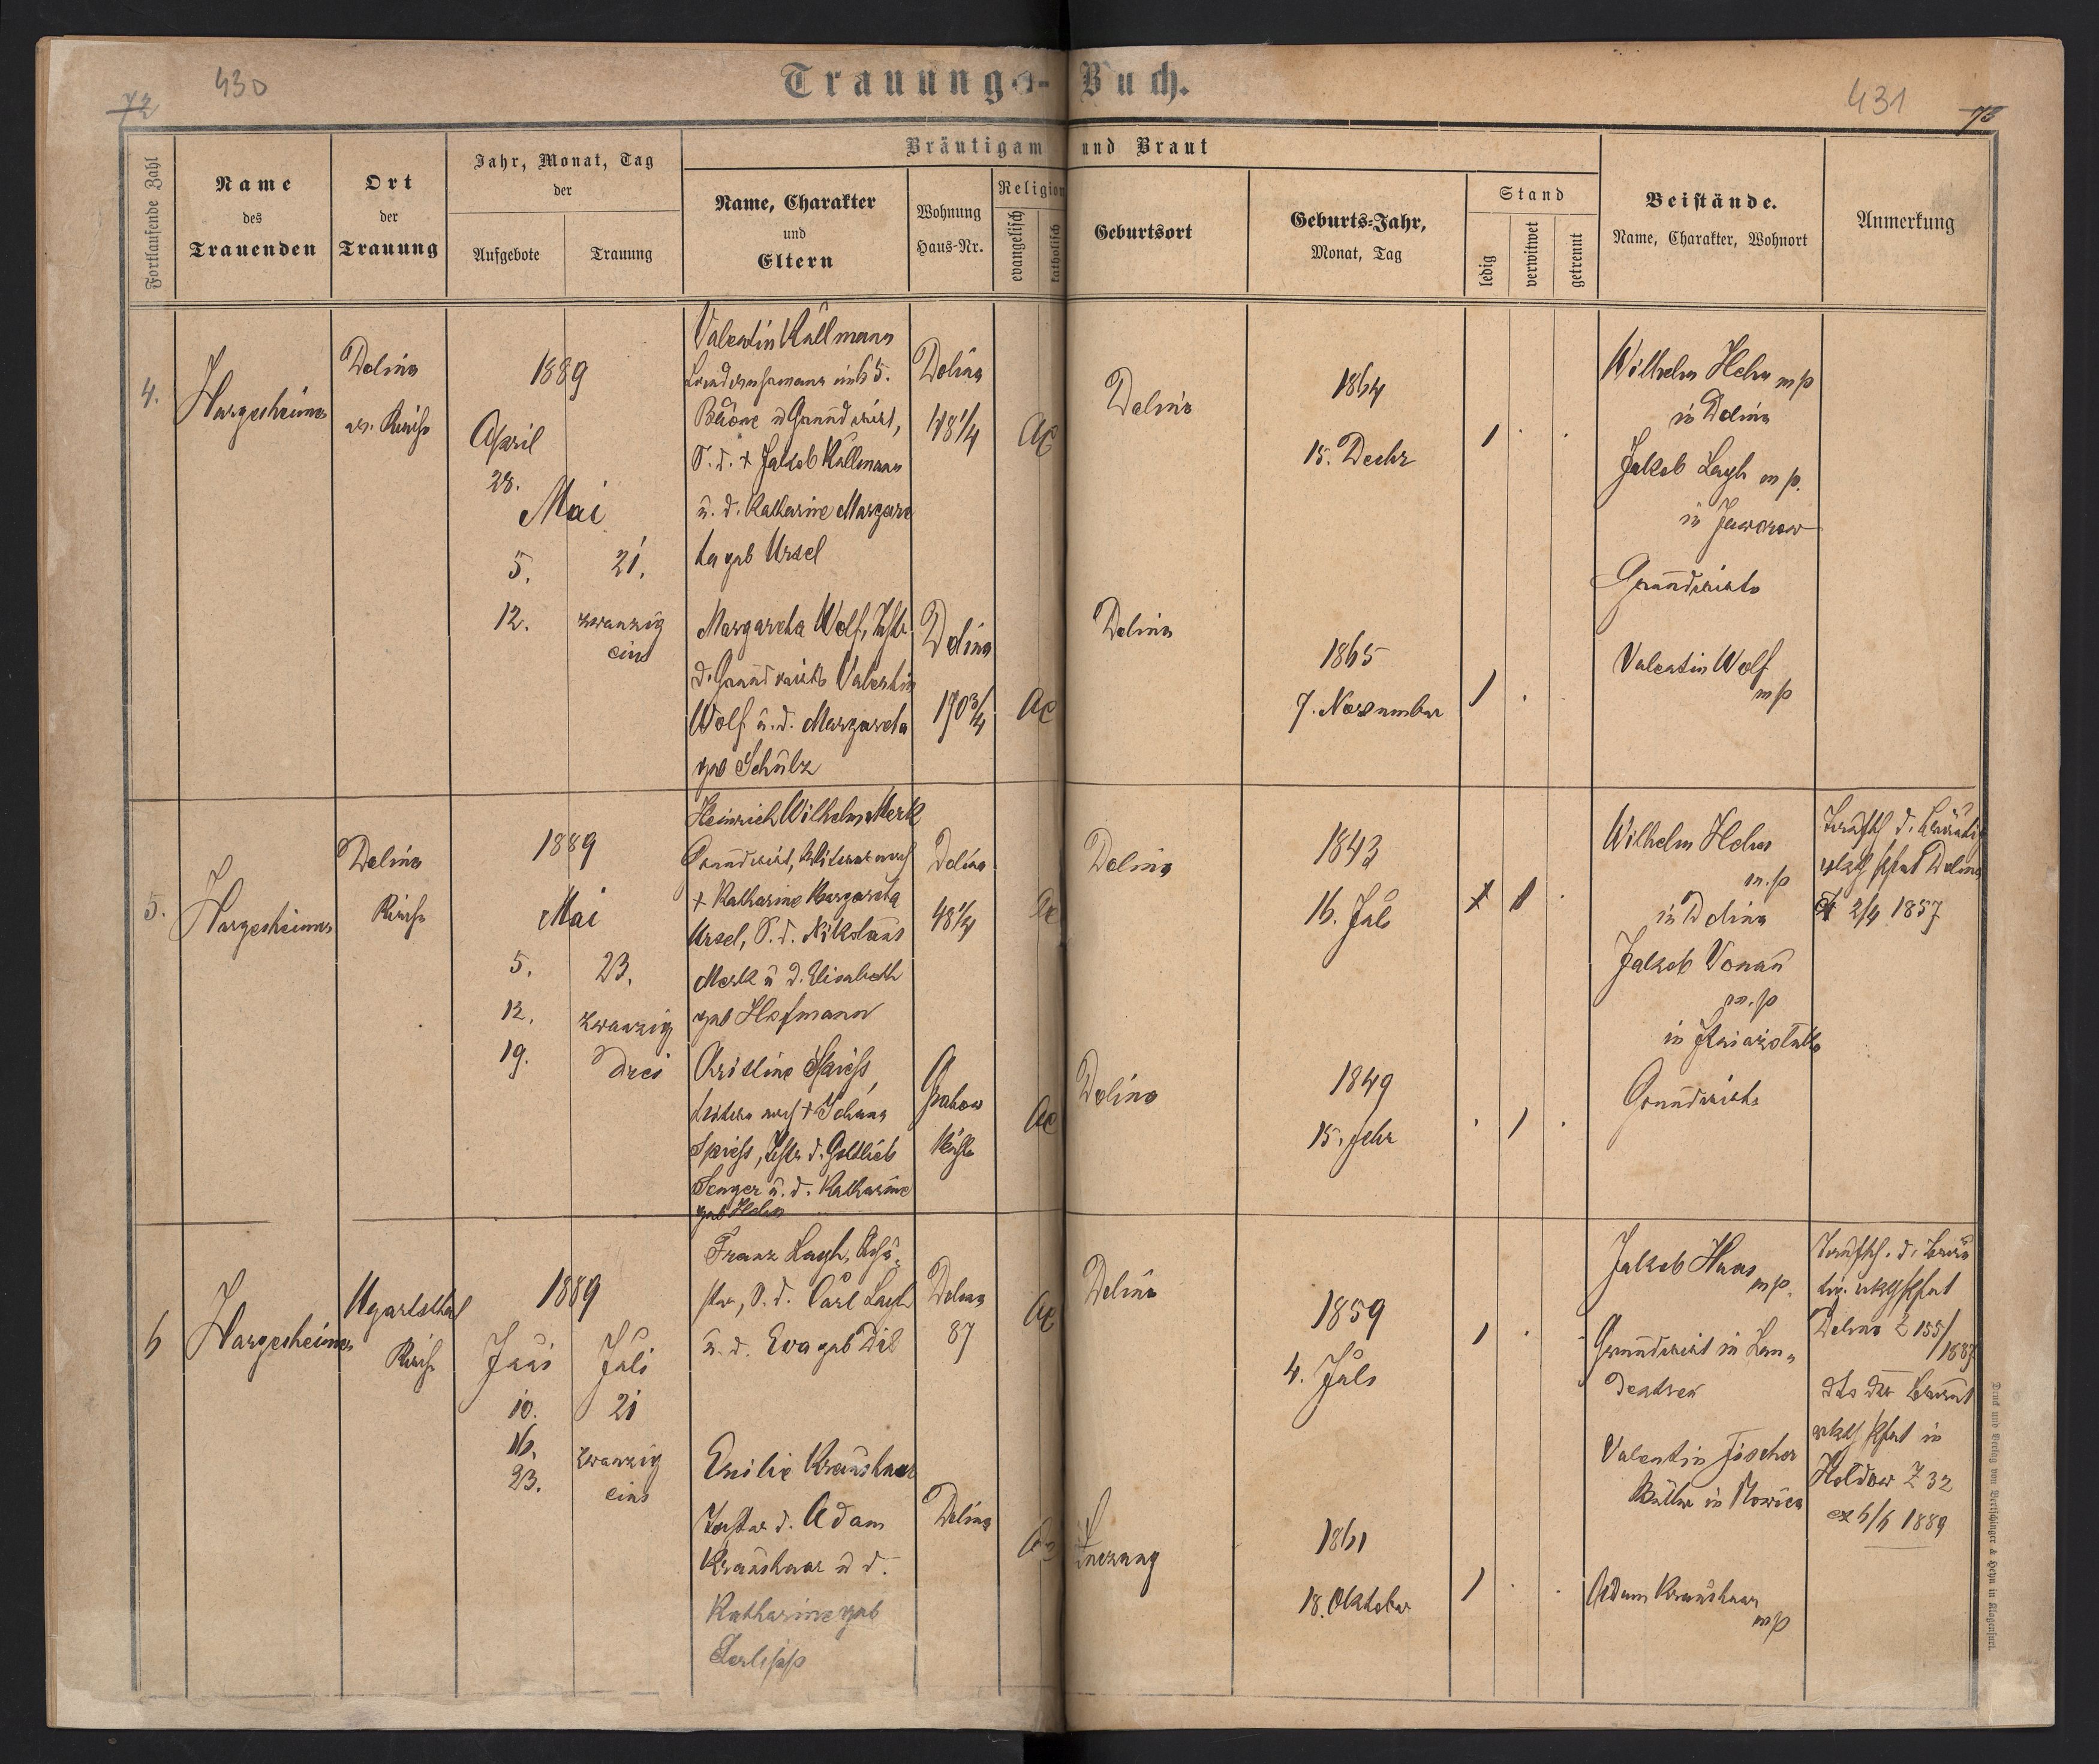 430
72
Trauungs-Buch.
431
73
Bräutigam und Braut
Fortlaufende Zahl
Name
des
Trauenden
Ort
der
Trauung
Jahr, Monat, Tag
der
Aufgebote
Trauung
Name, Charakter
und
Eltern
Wohnung
Haus-Nr.
Religion
evangelisch
katholisch
Geburtsort
Geburts-Jahr,
Monat, Tag
Stand
ledig
verwitwet
getrennt
Beistände.
Name, Charakter, Wohnort
Anmerkung
4.
Hargesheimer
Dolina
ev. Kirche
1889
April
28.
Mai
5.
12.
21.
zwanzig
eins
Valentin Kullmann
Grundwirt,
S. d. + Jakob Kullmann
u. d. Katharine Margare
ta geb Ursel
Dolina
148 1/4
AC
Dolina
1864
15. Decbr
1
Wilhelm Hehn mp
in Dolina
Jakob Layh mp.
in Jaworow
Grundwirte
Margareta Wolf, Tcht.
d. Grundwirts Valentin
Wolf u. d. Margareta
geb Schulz
Dolina
190 3/4
AC
Dolina
1865
7. November
1
Valentin Wolf
mp
5.
Hargesheimer
Dolina
Kirche
1889
Mai
5.
12.
19.
23.
zwanzig
drei
Heinrich Wilhelm Merk
Grundwirt, Witwer nach
+ Katharine Margareta
Ursel, S. d. Nikolaus
Merk u d. Elisabeth
geb Hofmann
Dolina
48 1/4
AC
Dolina
1843
16. Juli
1
Wilhelm Hehn
m.p
in Dolina
Jakob Vonau
m.p
in
Grundwirte
Taufsch d. Bräutig
Pfat Dolina
2/4 1857
Christine Spiess,
Witwe nach +
Spiess, Tcht. d. Gottlieb
Senger u. d. Katharine
geb Hehn
Grabow
AC
Dolina
1849
15. Febr
1
6
Hargesheimer
Ugartsthal
Kirche
1889
Juni
10.
16.
23.
Juli
21
zwanzig
eins
Franz Layh, Schu-
ster, S. d. Carl Layh
u. d. Eva geb Dil
Dolina
87
AC
Dolina
1859
4. Juli
1
Jakob Haas
mp.
Grundwirt in Lan-
destreu
Valentin Fischer
Müller in Nowica
Taufsch. d. Bräu
tig.
Dolina Z 155/
1887
dto der Braut
Pfat in
Z 32
6/6 1889
Emilie Kraushaar
Tochter d. Adam
Kraushaar u d.
Katharine geb
Dolina
1861
18. Oktober
1
Adam Kraushaar
mp
Druck und Verlag von Bertschinger & Heyn in Klagenfurt.